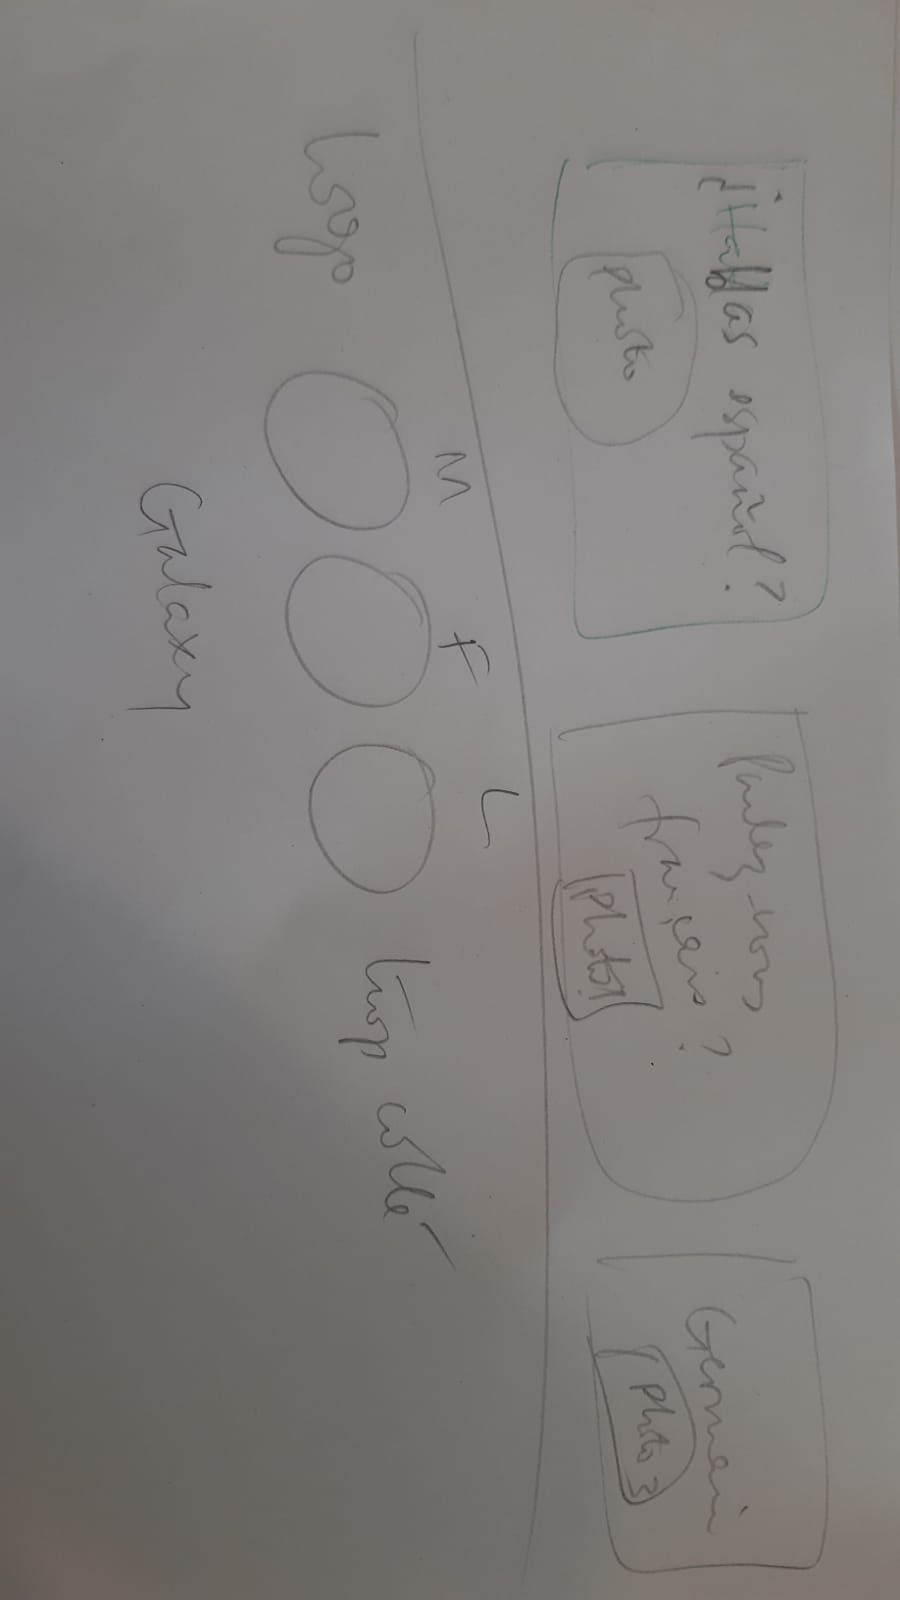 ¿Hablas español?
photo
Parlez-vous
français ?
photo1
German
Photo 3
M F L
Logo
trop collé
Galaxy